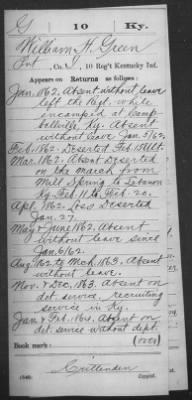 G | 10 | Ky.
William H. Green
Pvt., Co. , 10 Reg't Kentucky Inf.
Appears on Returns as follows:
Jan. 1862. Absent without leave
left the Regt. while
encamped at Camp-
bellville, Ky. Absent
without leave Jan. 5/62.
Feb. 1862. Deserted Feb. 15
Mar. 1862. Absent Deserted
on the march from
Mill Spring to Lebanon
Ky. Feb. 11 to Feb. 20.
Apl. 1862. Loss Deserted
Jan. 27.
May & June 1862. Absent
without leave since
Jan. 6/62.
Aug. 1862 to Mch. 1863. Absent
without leave.
Nov. & Dec. 1863. Absent on
det. service, recruiting
service in Ky.
Jan. & Feb. 1864. Absent on
det. service without dept.
Book mark:
Crittenden
(546) Copyist.